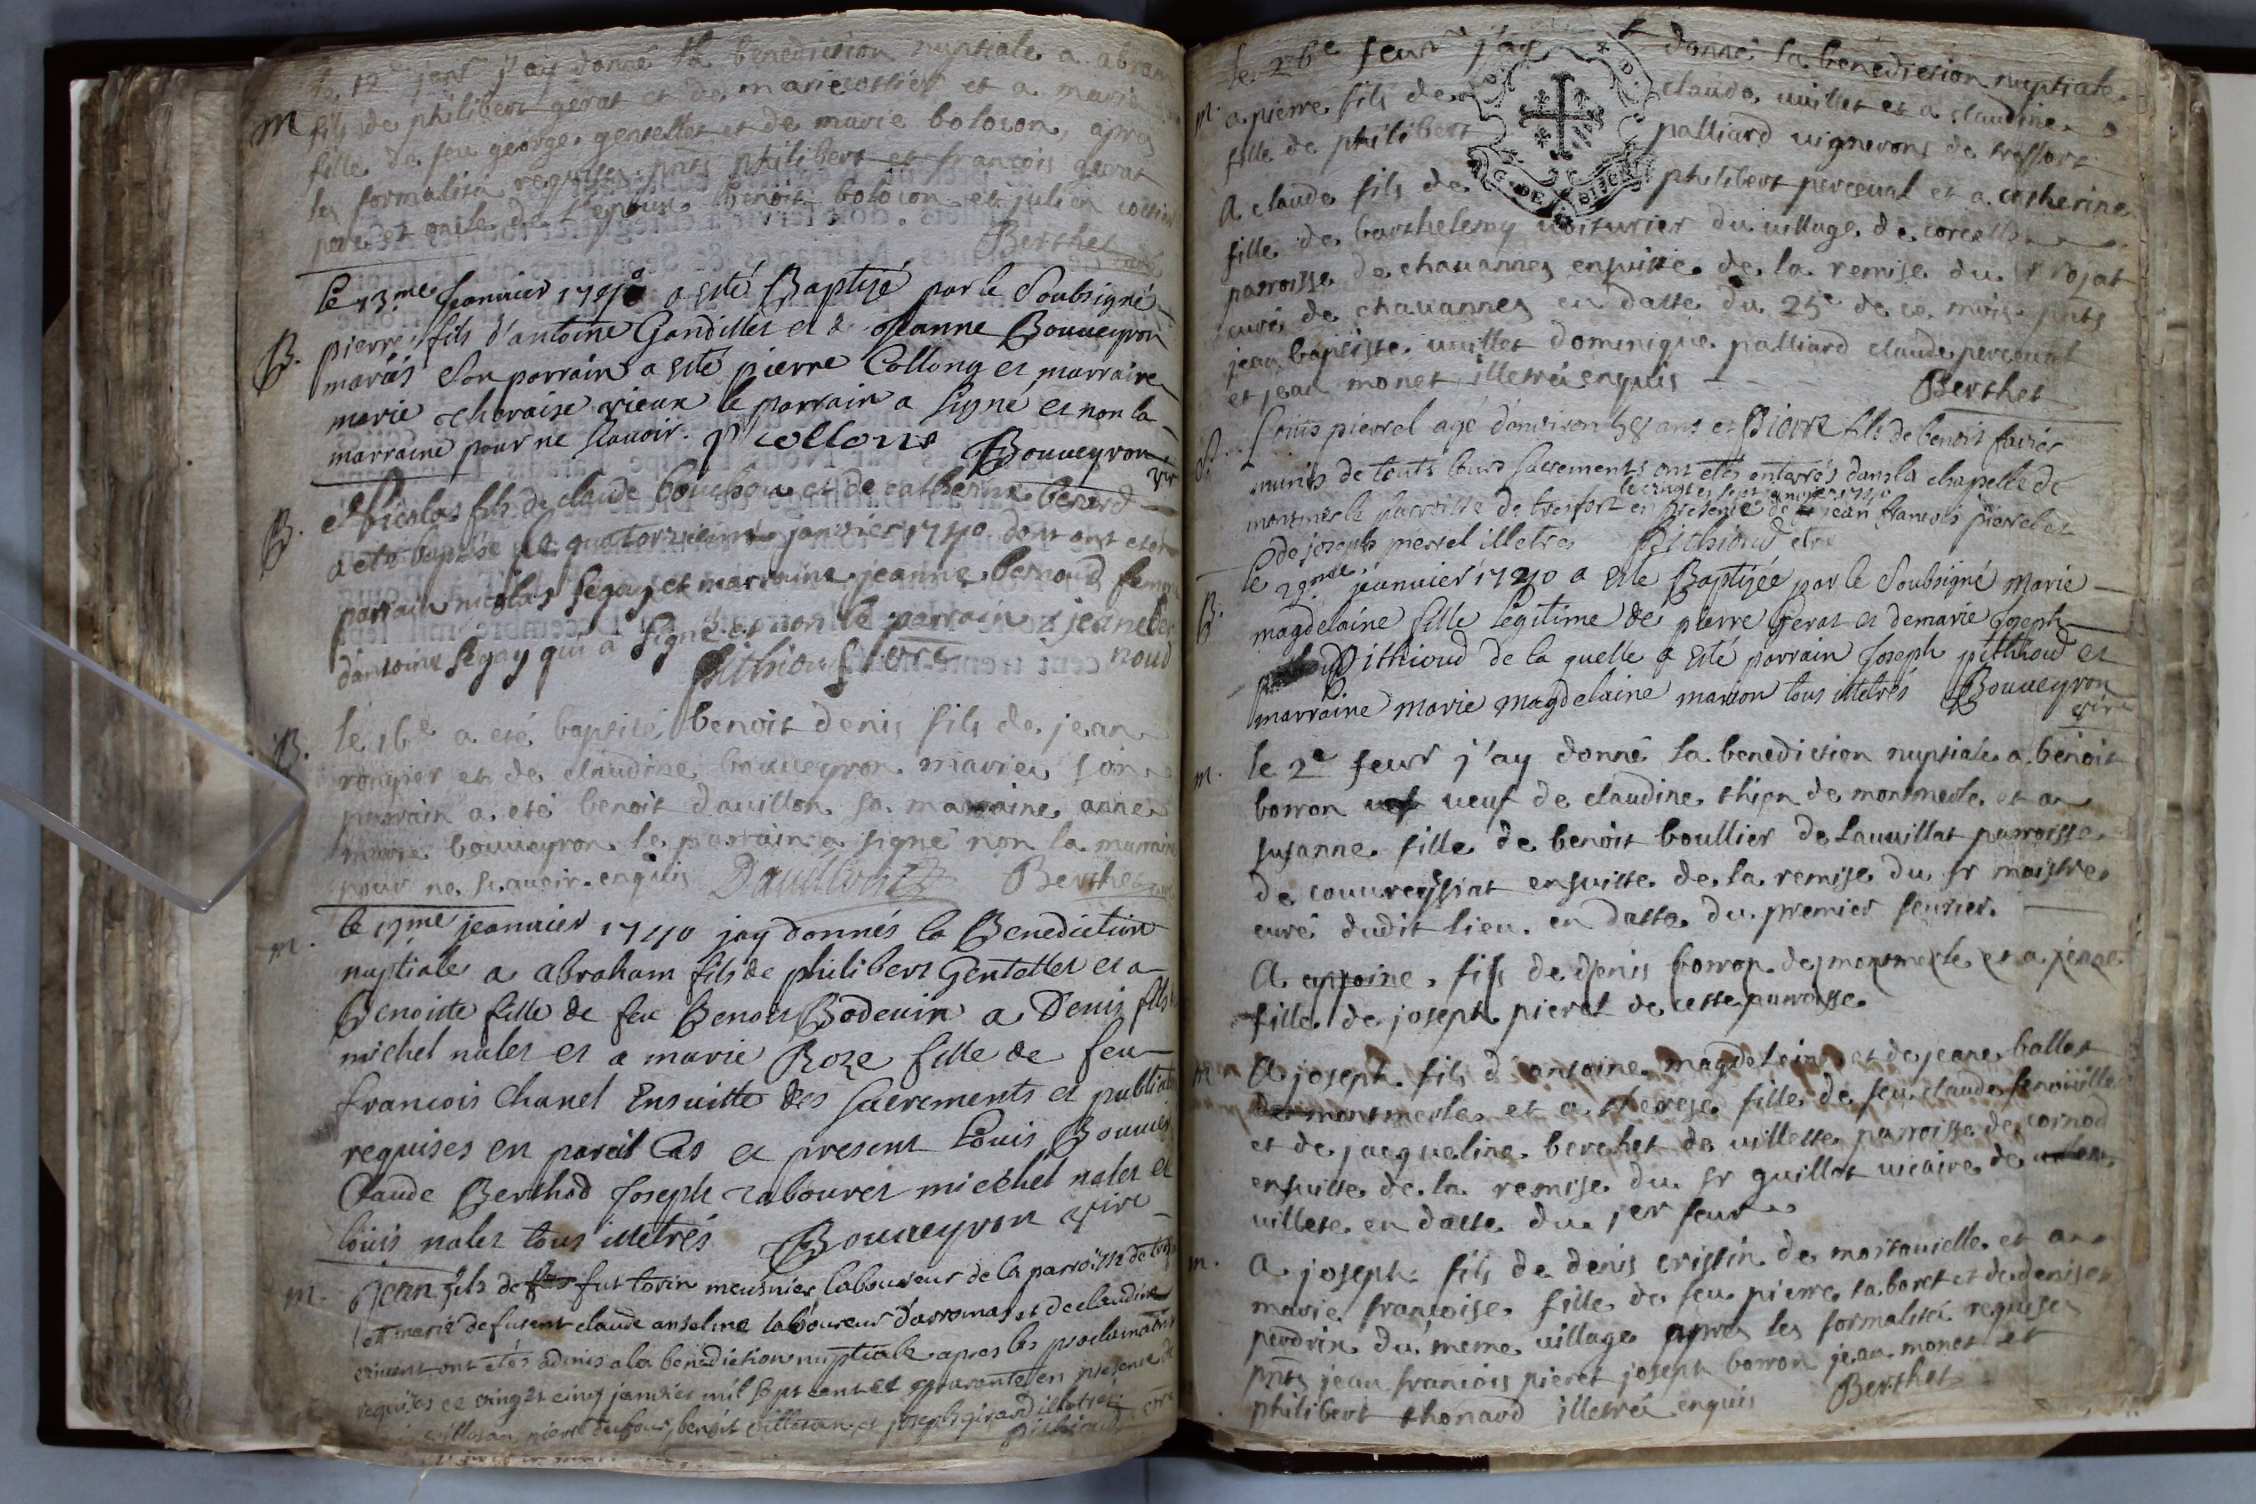 le 12e janr j'ay donné la benediction nuptiale a abram
M fils de philibert gerat et de marie cottier et a marie
fille de feu george gentellet et de marie bolocon, apres
les formalités requises pnts philibert et francois gerat
pere et oncle de l'epoux benoit bolocon et julien cottier
Berthet curé
le 13.me Jeanvier 1740 a esté Baptisé par le Soubsigné
B. pierre fils d'antoine Gandillet et de Jeanne Bouveyron
mariés Son parrain a esté pierre Collong et marraine
marie charaise vieux le parrain a signé et non la
marraine pour ne scavoir. P collong Bouveyron
vire
B. Nicolas fils de claude bouchou et de catherine berard
a eté baptisé le quatorzieme janvier 1740 dont ont eté
parrain nicolas segay et marraine jeanne bernoud femme
d'antoine segay qui a signé et non le parrain jeane ber
noud
pithioud
B. le 16e a eté baptisé benoit denis fils de jean
rongier et de claudine bouveyron mariés son
parrain a eté benoit davillon sa marraine anne
marie bouveyron le parrain a signé non la marraine
pour ne scavoir enquis Davillon Berthet curé
m. le 19me jeanvier 1740 jay donnés la Benediction
nuptiale a abraham fils de philibert Gentellet et a
Benoitte fille de feu Benoit Bodevin a Denis fils
michel nalet et a marie Roze fille de feu
francois Chanel Ensuitte des sacrements et public
requises en pareil Cas et present Louis Bouvier
Claude Berthod Joseph rabouret miechel nalet et
louis nalet tous illetrés Bouveyron vire
m. Jean fils de fut tovin meusnier laboureur de la parroisse de
et marie de fut claude anseline laboureur d'arromas et de claudine
ont etés admis a la benediction nuptiale apres les proclamations
requises ce vingt et cinq janvier mil sept cent et quarante en presence de
pierre dufour benoit villetan et joseph girard illetres
pithioud
le 26e feuvr j'ay donné la benediction nuptiale
m. a pierre fils de claude vuillet et a claudine
fille de philibert palliard vignerons de treffort
A claude fils de philibert perceval et a catherine
fille de barthelemy voiturier du village de corcelle
parroisse de chavannes ensuitte de la remise du sr rojat
curé de chavannes en datte du 25e de ce mois pnts
jean baptiste vuillet dominique palliard claude perceval
et jean monet illetrés enquis Berthet
G. DE B
Louis pierrel agé d'environ 58 ans et Pierre fils de benoit favier
munis de touts leurs sacrements ont etés enterrés dans la chapelle de
le vingt et sept janvier 1740
montmerle parroisse de treffort en presence de jean francois pierrel et
de joseph pierrel illetres Pithioud
B. le 29.me jeanvier 1740 a esté Baptisée par le Soubsigné Marie
magdelaine fille legitime de pierre Gerat et de marie Joseph
Pithioud de la quelle a esté parrain Joseph pithioud et
marraine marie magdelaine marion tous illetrés Bouveyron
vire
m. le 2e feuvr j'ay donné la benediction nuptiale a benoit
borron veuf de claudine thien de montmerle et a
susanne fille de benoit boullier de lavvillat parroisse
de couvreyssiat ensuitte de la remise du sr maistre
curé dudit lieu en datte du premier feuvrier.
A antoine fils de denis borron de montmerle et a jeane
fille de joseph pieret de cette parroisse
m A joseph fils d'antoine magdelaine et de jeane ballet
de montmerle et a therese fille de feu claude fenoüille
et de jacqueline berchet de villette parroisse de cornod
ensuitte de la remise du sr guillot vicaire de
villete en datte du jer feuvr
m. A joseph fils de denis cristin de montavielle et a
marie francoise fille de feu pierre taboret et de denise
perdrix du meme village apres les formalités requises
pnts jean francois pieret joseph borron jean monet et
philibert thonard illetrés enquis Berthet